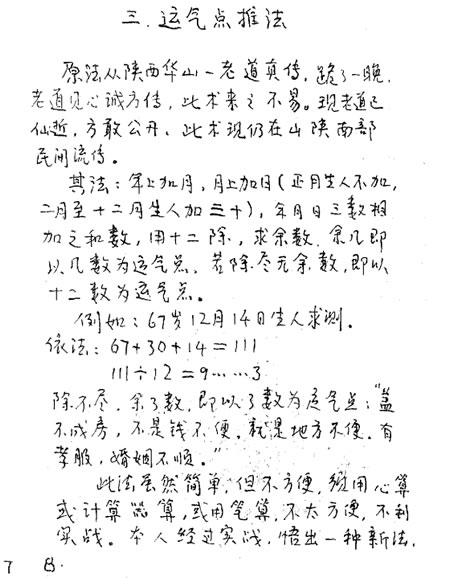 三.运气点推法
原法从陕西华山一老道真传.跪了一晚.
老道见心诚方传,此术来之不易。现老道已
仙逝,方敢公开、此术现仍在山陕南部
民间流传。
其法:年上加月,月上加日(正月生人不加,
二月至十二月生人加三十),年月日三数相
加之和数,用十二除,求余数.余几即
以几数为运气点.若除尽无余数,即以
十二数为运气点。
例如:67岁12月14日生人求测.
依法:67+30+14=111
111÷12=9……3
除不尽.余3数.即以3数为运气点:“盖
不成房,不是钱不便.就是地方不便.有
孝服,婚姻不顺。”
此法虽然简单,但不方便,须用心算
或计算器算,或用笔算.不太方便,不利
实战。本人经过实战,悟出一种新法.
7 8.